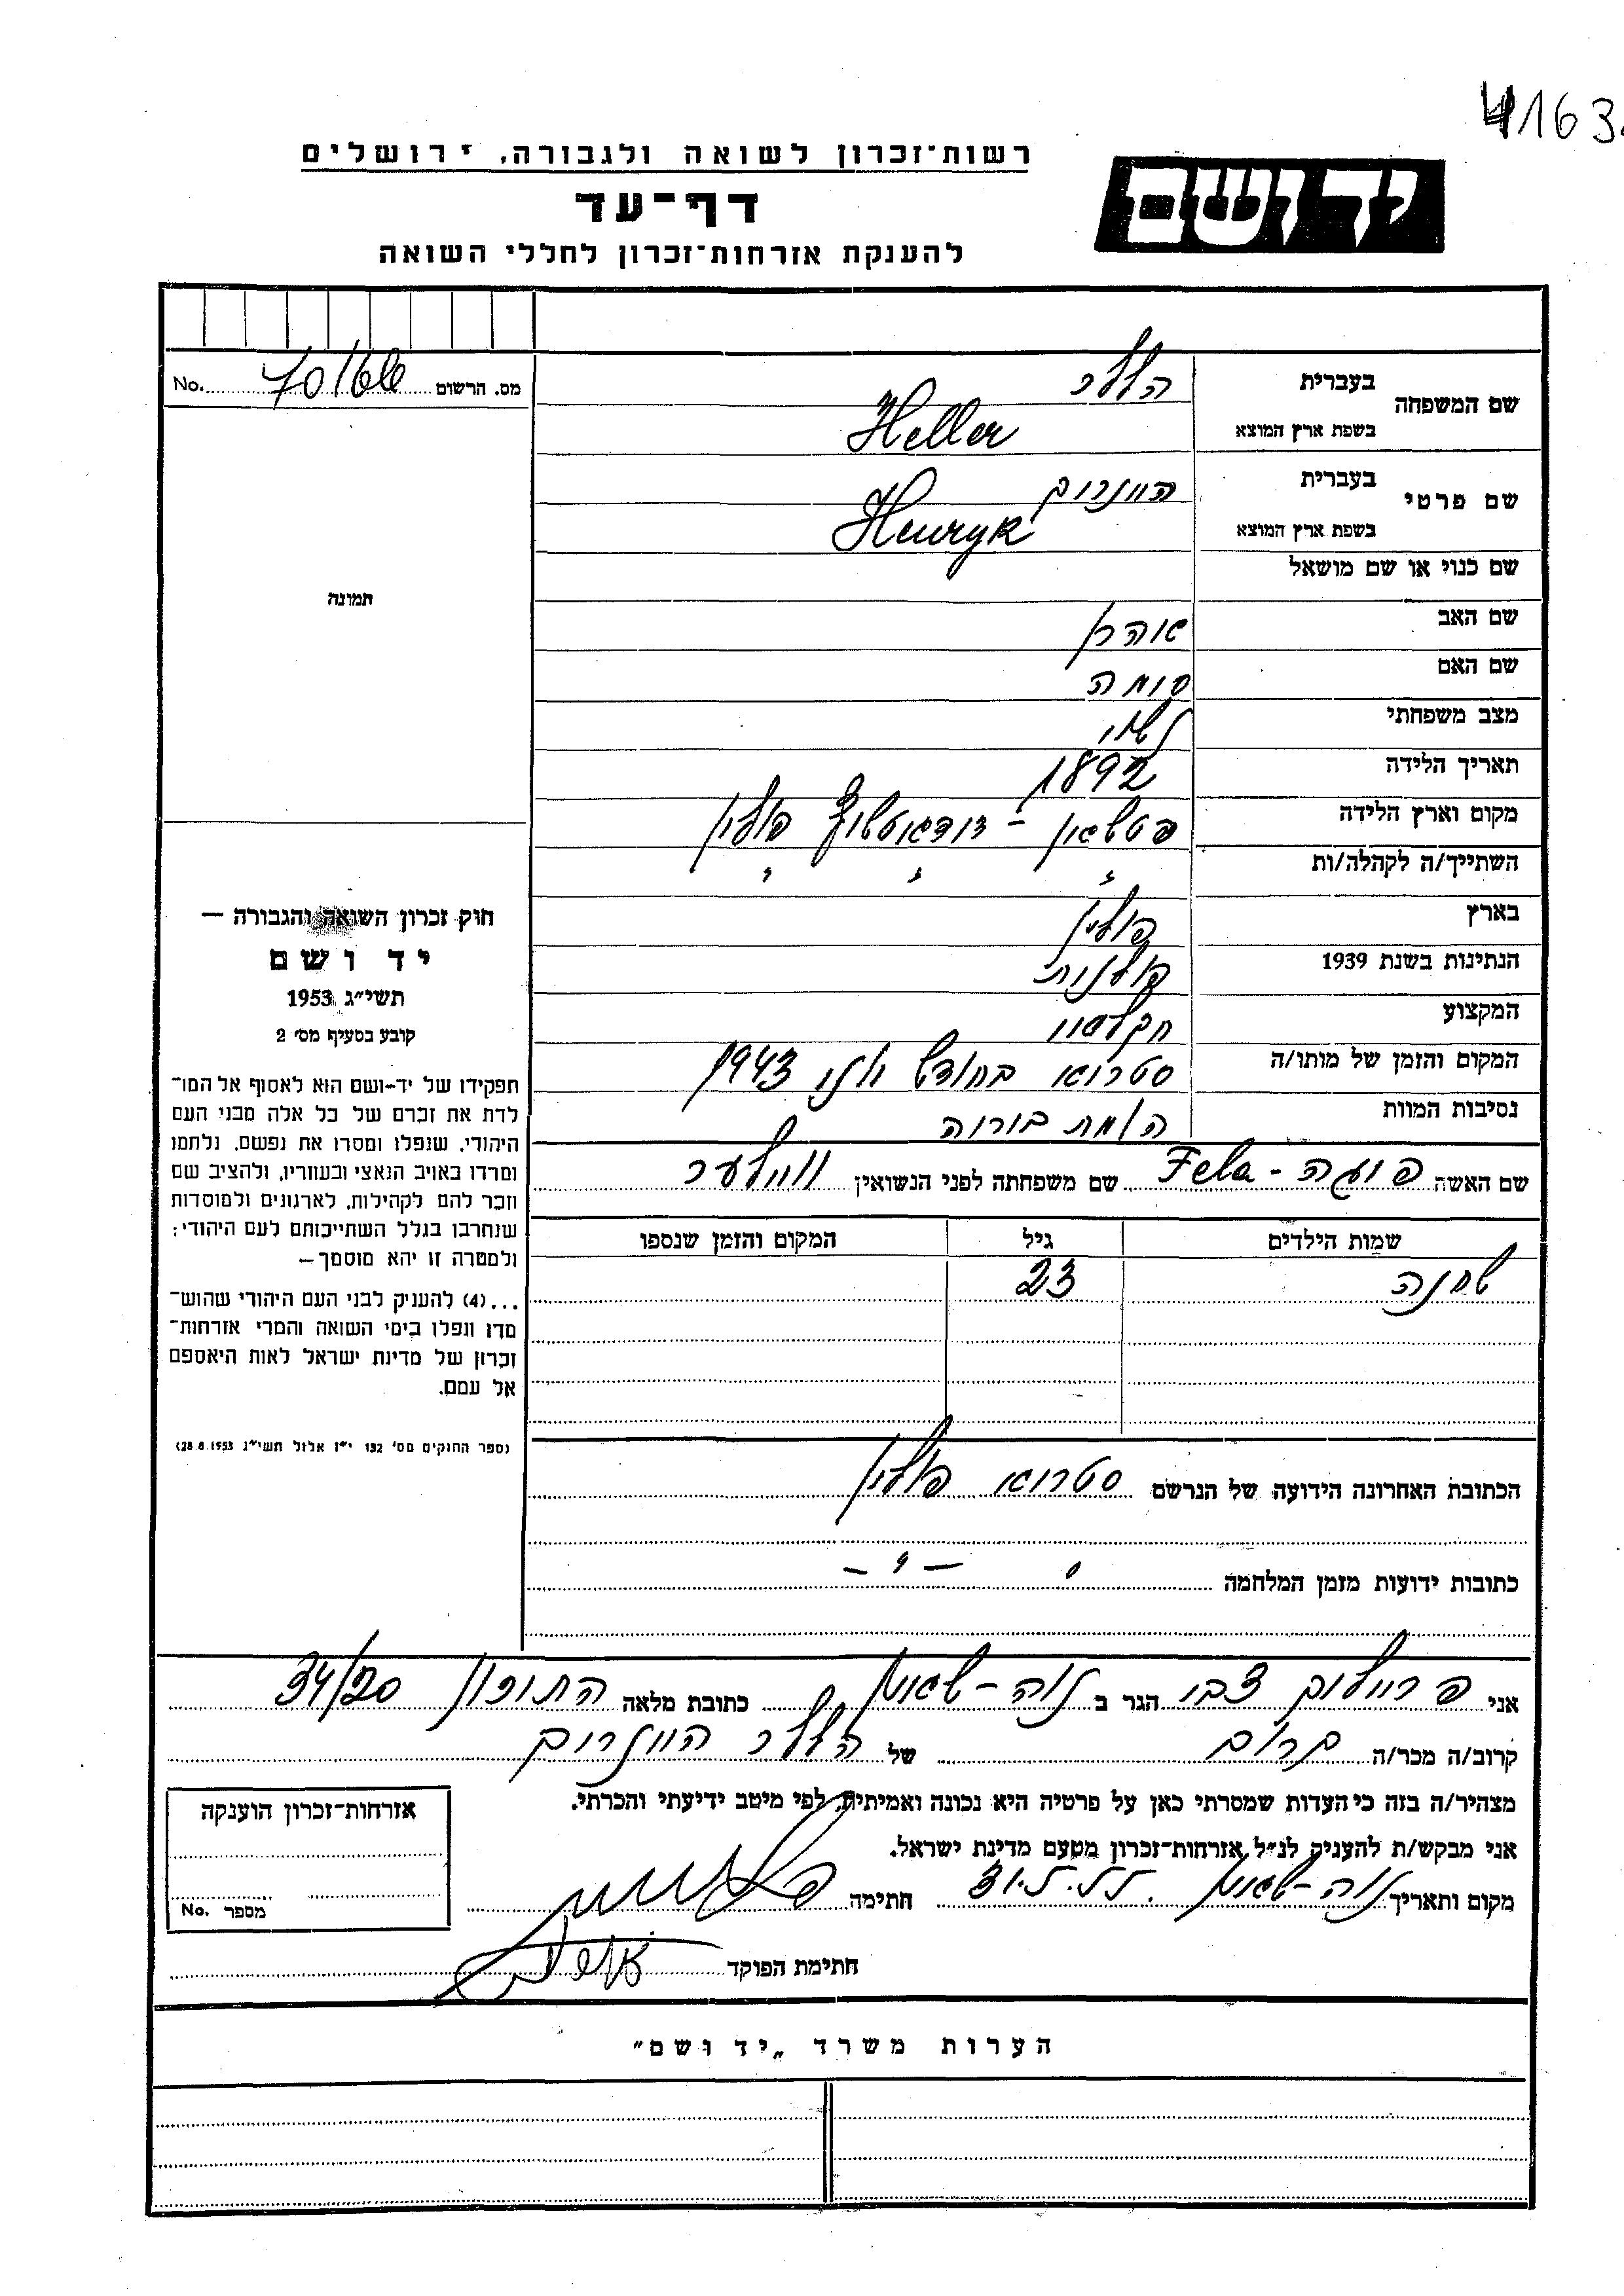 4163
רשות־זכרון לשואה ולגבורה, ירושלים
דף־עד
להענקת אזרחות־זכרון לחללי השואה
יד ושם
No. 70166 מס. הרשום
תמונה
חוק זכרון השואה והגבורה —
יד ושם
תשי״ג 1953
קובע בסעיף מס׳ 2
תפקידו של יד-ושם הוא לאסוף אל המו־
לדת את זכרם של כל אלה מבני העם
היהודי, שנפלו ומסרו את נפשם, נלחמו
ומרדו באויב הנאצי ובעוזריו, ולהציב שם
וזכר להם לקהילות, לארגונים ולמוסדות
שנחרבו בגלל השתייכותם לעם היהודי;
ולמטרה זו יהא מוסמך—
...(4) להעניק לבני העם היהודי שהוש־
מדו ונפלו בימי השואה והמרי אזרחות־
זכרון של מדינת ישראל לאות היאספם
אל עמם.
(ספר החוקים מס׳ 132 י״ז אלול תשי״ג 28.8.1953)
שם המשפחה בעברית הללר
בשפת ארץ המוצא Heller
שם פרטי בעברית היינריך
בשפת ארץ המוצא Henryk
שם כנוי או שם מושאל
שם האב אהרן
שם האם
מצב משפחתי נשוי
תאריך הלידה 1892
מקום וארץ הלידה פולין
השתייך/ה לקהלה/ות " " "
בארץ פולין
הנתינות בשנת 1939 פולנית
המקצוע חקלאי
המקום והזמן של מותו/ה סטרוא בחודש יוני 1943
נסיבות המוות המת יורה
שם האשה פייגה - Fela שם משפחתה לפני הנשואין ווילער
שמות הילדים גיל המקום והזמן שנספו
23
הכתובת האחרונה הידועה של הנרשם סטרוא פולין
כתובות ידועות מזמן המלחמה " — " —
אני פרוילוך צבי הגר ב נוה-שאנן כתובת מלאה התיכון 34/20
קרוב/ה מכר/ה קרוב של הללר היינריך
מצהיר/ה בזה כי העדות שמסרתי כאן על פרטיה היא נכונה ואמיתית, לפי מיטב ידיעתי והכרתי.
אני מבקש/ת להעניק לנ״ל אזרחות־זכרון מטעם מדינת ישראל.
מקום ותאריך נוה-שאנן חתימה
חתימת הפוקד
אזרחות־זכרון הוענקה
מספר No.
הערות משרד „יד ושם״